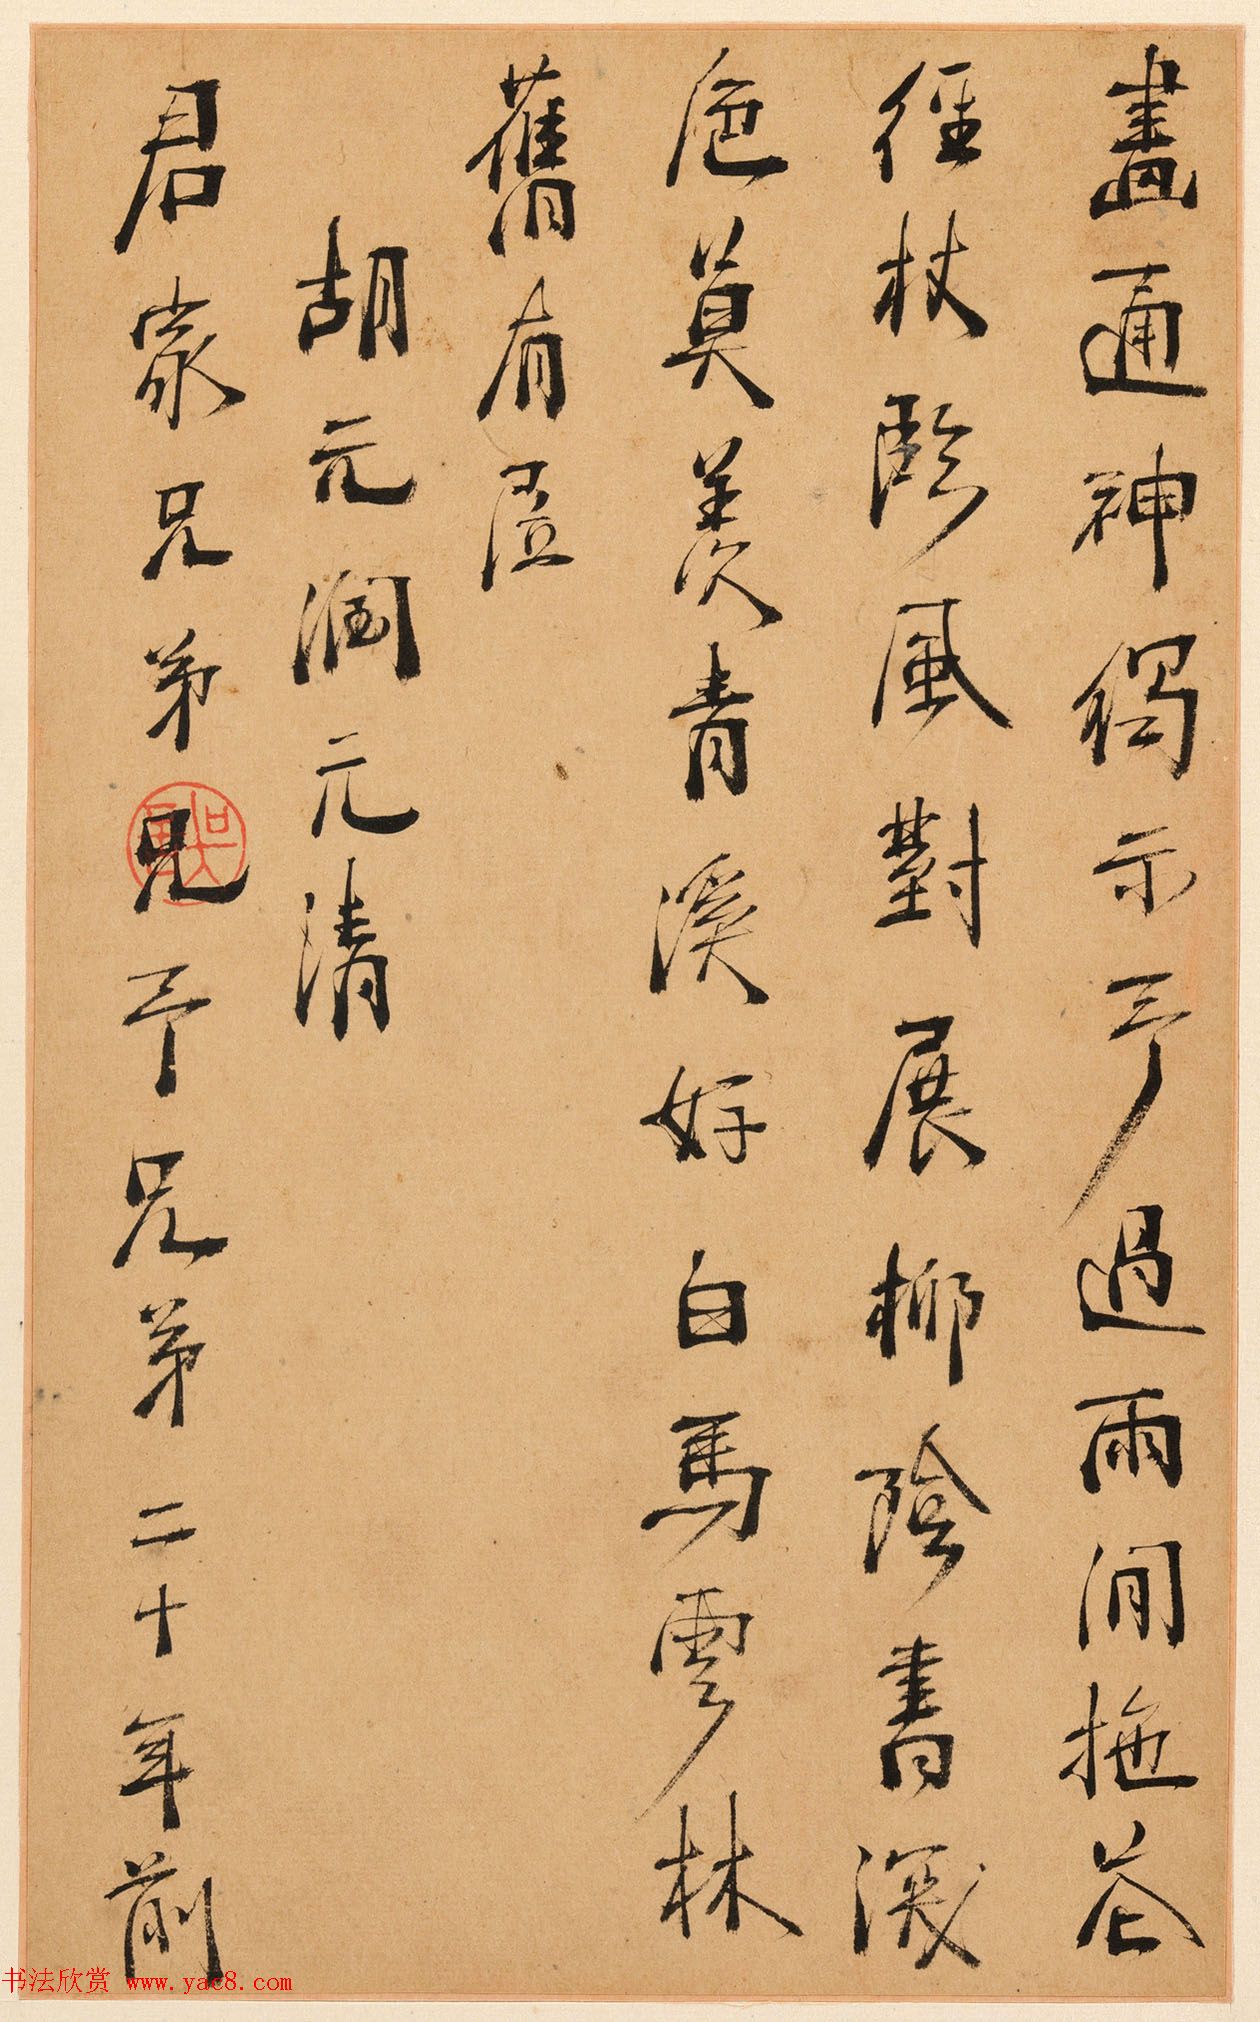 畫通神獨示予過雨閒拖花
徑杖臨風對展柳陰書
莫羨青溪好白馬雲林
舊有
胡元潤元清
君家兄弟兄予兄弟二十年前
书法欣赏 www.yac8.com